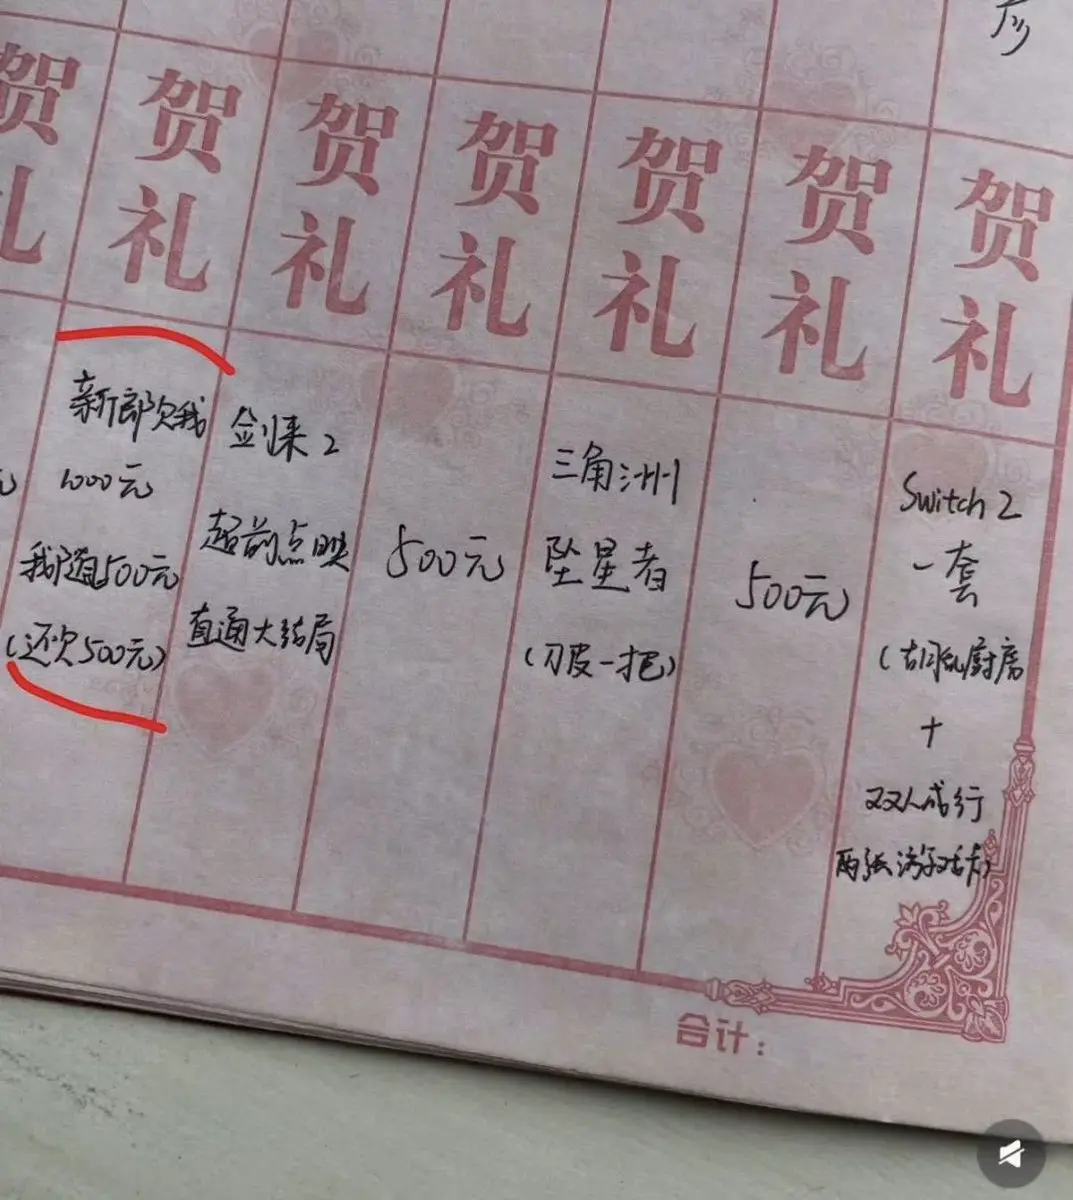 彦
贺礼
贺礼
贺礼
贺礼
贺礼
贺礼
贺礼
Switch 2
一套
(胡闹厨房
+
双人成行
两张游戏卡)
500元
三角洲
坠星者
(刀皮一把)
500元
剑来2
超前点映
直通大结局
新郎欠我
1000元
我随500元
(还欠500元)
元
合计: